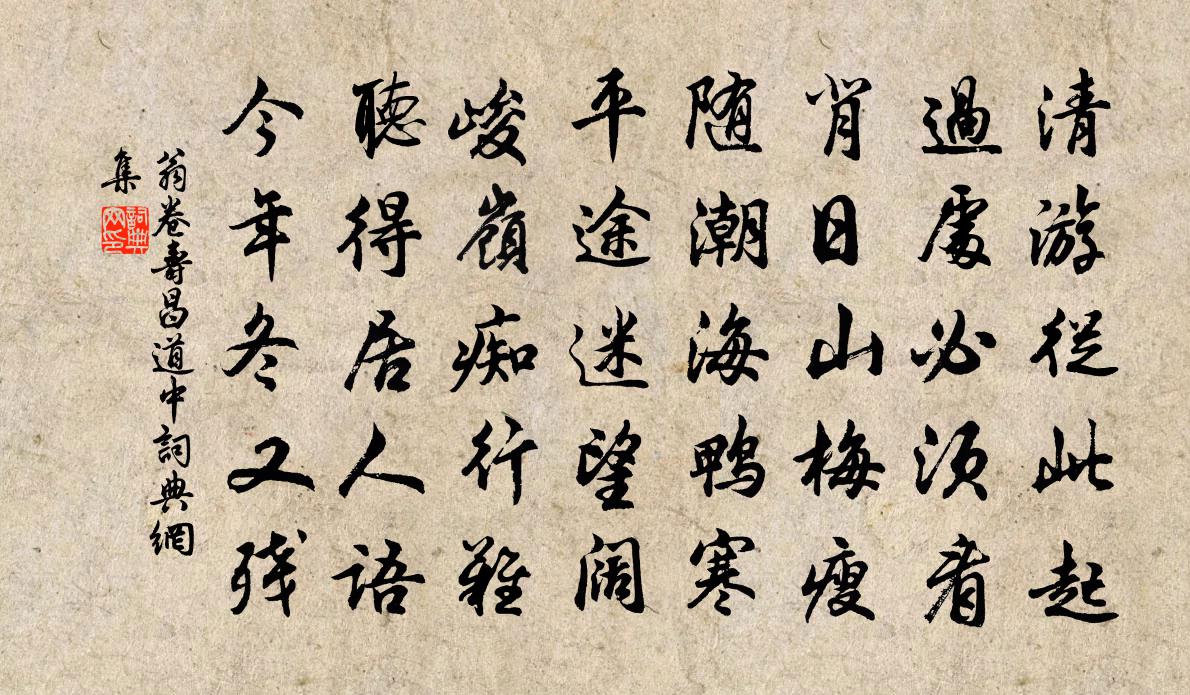 清游從此起
過處必須看
背日山梅瘦
随潮海鴨寒
平途迷望闊
峻嶺痴行難
聽得居人語
今年冬又殘
翁卷壽昌道中詞典網
集
詞典
网印